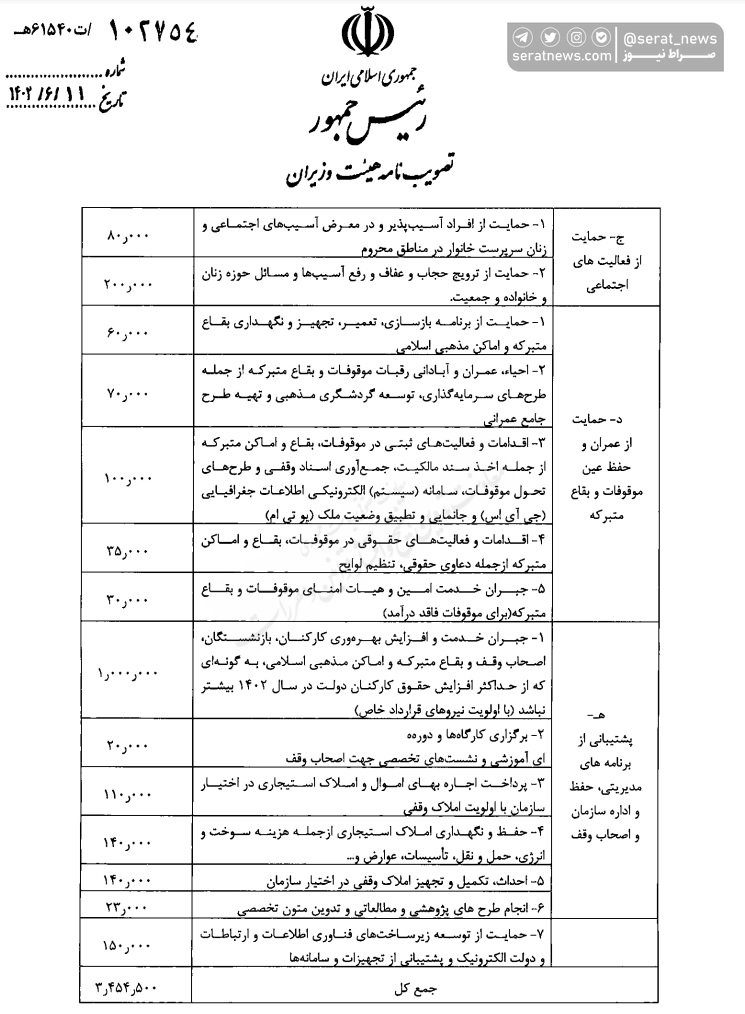 ۱۰۲۷۵۴ /ت۶۱۵۴۰هـ
شماره
تاریخ ۱۴۰۲/۶/۱۱
جمهوری اسلامی ایران
رئیس جمهور
تصویب نامه هیئت وزیران
@serat_news
seratnews.com صراط نیوز
ج- حمایت
از فعالیت های
اجتماعی
۱- حمایت از افراد آسیب‌پذیر و در معرض آسیب‌های اجتماعی و
زنان سرپرست خانوار در مناطق محروم
۸۰٫۰۰۰
۲- حمایت از ترویج حجاب و عفاف و رفع آسیب‌ها و مسائل حوزه زنان
و خانواده و جمعیت.
۲۰۰٫۰۰۰
د- حمایت
از عمران و
حفظ عین
موقوفات و بقاع
متبرکه
۱- حمایت از برنامه بازسازی، تعمیر، تجهیز و نگهداری بقاع
متبرکه و اماکن مذهبی اسلامی
۶۰٫۰۰۰
۲- احیاء، عمران و آبادانی رقبات موقوفات و بقاع متبرکه از جمله
طرح‌های سرمایه‌گذاری، توسعه گردشگری مذهبی و تهیه طرح
جامع عمرانی
۷۰٫۰۰۰
۳- اقدامات و فعالیت‌های ثبتی در موقوفات، بقاع و اماکن متبرکه
از جمله اخذ سند مالکیت، جمع‌آوری اسناد وقفی و طرح‌های
تحول موقوفات، سامانه (سیستم) الکترونیکی اطلاعات جغرافیایی
(جی آی اس) و جانمایی و تطبیق وضعیت ملک (یو تی ام)
۱۰۰٫۰۰۰
۴- اقدامات و فعالیت‌های حقوقی در موقوفات، بقاع و اماکن
متبرکه ازجمله دعاوی حقوقی، تنظیم لوایح
۳۵٫۰۰۰
۵- جبران خدمت امین و هیات امنای موقوفات و بقاع
متبرکه(برای موقوفات فاقد درآمد)
۳۰٫۰۰۰
هـ-
پشتیبانی از
برنامه های
مدیریتی، حفظ
و اداره سازمان
و اصحاب وقف
۱- جبران خدمت و افزایش بهره‌وری کارکنان، بازنشستگان،
اصحاب وقف و بقاع متبرکه و اماکن مذهبی اسلامی، به گونه‌ای
که از حداکثر افزایش حقوق کارکنان دولت در سال ۱۴۰۲ بیشتر
نباشد (با اولویت نیروهای قرارداد خاص)
۱٫۰۰۰٫۰۰۰
۲- برگزاری کارگاه‌ها و دوره‌ه
ای آموزشی و نشست‌های تخصصی جهت اصحاب وقف
۲۰٫۰۰۰
۳- پرداخت اجاره بهای اموال و املاک استیجاری در اختیار
سازمان با اولویت املاک وقفی
۱۱۰٫۰۰۰
۴- حفظ و نگهداری املاک استیجاری ازجمله هزینه سوخت و
انرژی، حمل و نقل، تأسیسات، عوارض و...
۱۴۰٫۰۰۰
۵- احداث، تکمیل و تجهیز املاک وقفی در اختیار سازمان
۱۴۰٫۰۰۰
۶- انجام طرح های پژوهشی و مطالعاتی و تدوین متون تخصصی
۲۳٫۰۰۰
۷- حمایت از توسعه زیرساخت‌های فناوری اطلاعات و ارتباطات
و دولت الکترونیک و پشتیبانی از تجهیزات و سامانه‌ها
۱۵۰٫۰۰۰
جمع کل
۳٫۴۵۴٫۵۰۰